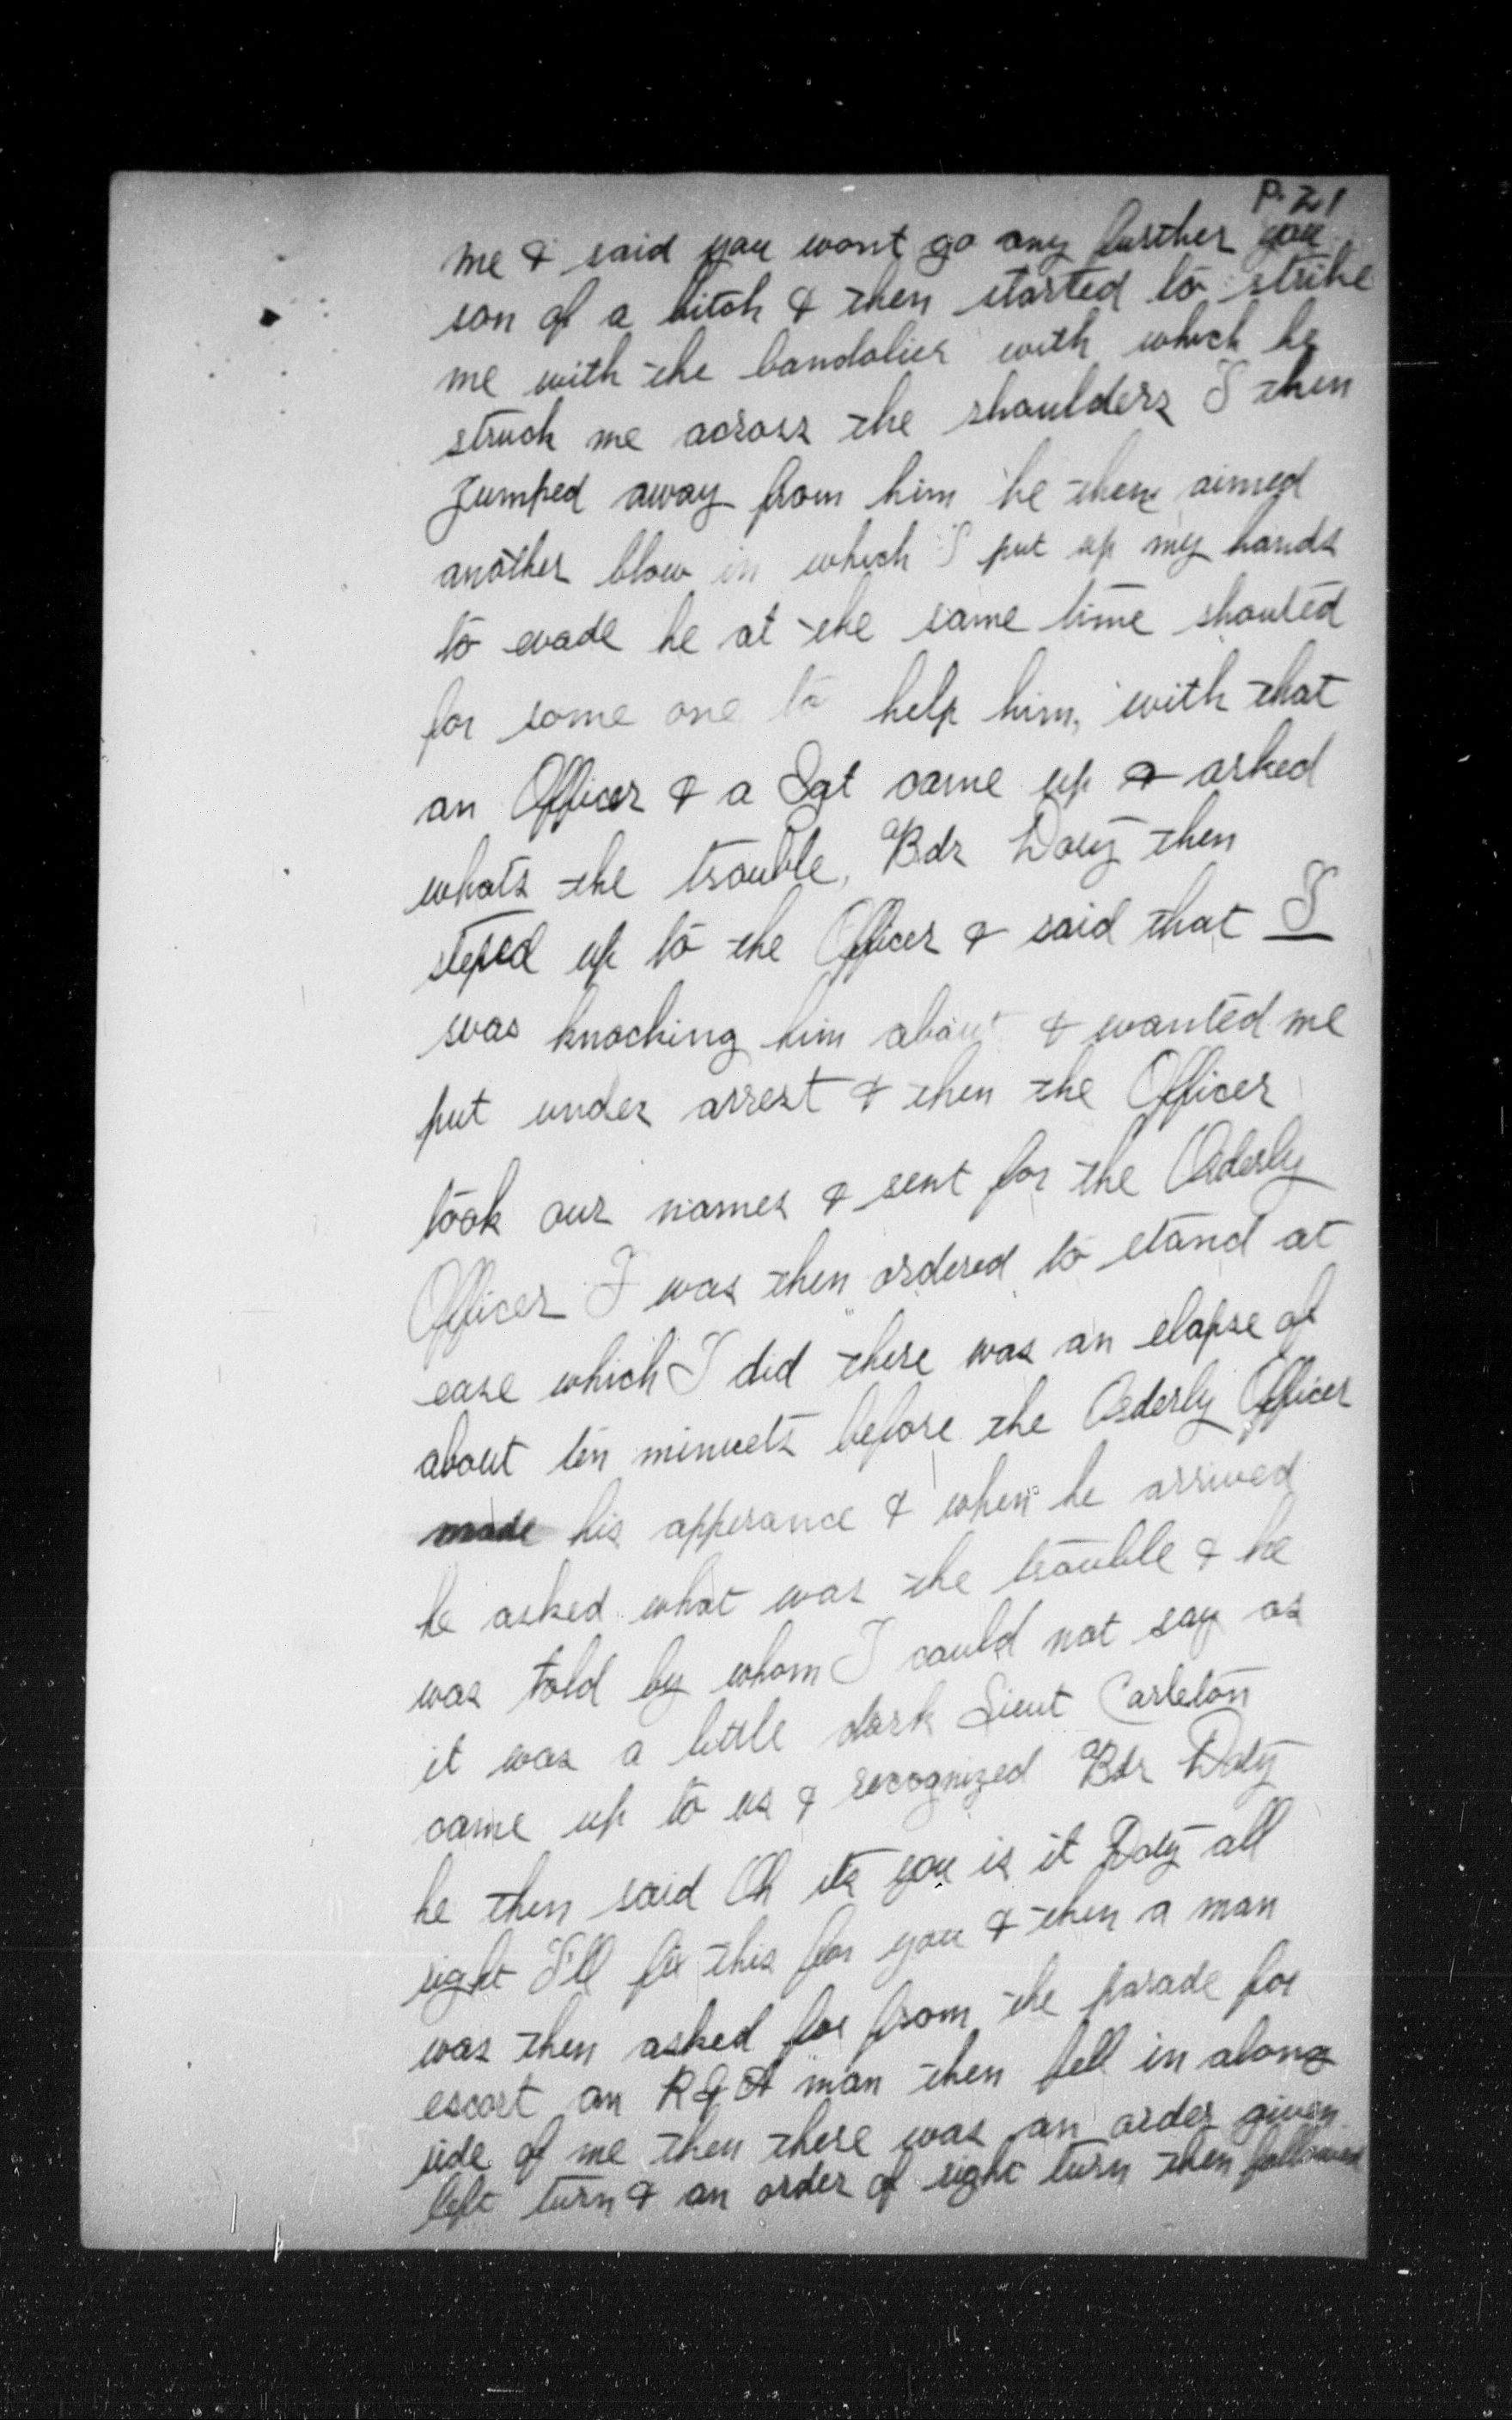 P. 21
me & said you wont go any further you
son of a bitch & then started to strike
me with the bandolier with which he
struck me across the shoulders I then
jumped away from him he then aimed
another blow in which I put up my hands
to evade he at the same time shouted
for some one to help him, with that
an Officer & a Sgt came up & asked
whats the trouble, a/Bdr Doty then
steped up to the Officer & said that I
was knocking him about & wanted me
put under arrest & then the Officer
took our names & sent for the Orderly
Officer I was then ordered to stand at
ease which I did there was an elapse of
about ten minuets before the Orderly Officer
made his apperance & when he arrived
he asked what was the trouble & he
was told by whom I could not say as
it was a little dark Lieut Carleton
came up to us & recognized a/Bdr Doty
he then said Oh its you is it Doty all
right I'll fix this for you & then a man
was then asked for from the parade for
escort an RGA man then fell in along
side of me then there was an order given
left turn & an order of right turn then followed